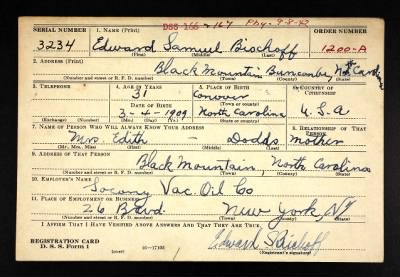 DSS 166 - 167 Phy-9-8-42
SERIAL NUMBER 1. NAME (Print) ORDER NUMBER
3234 Edward Samuel Bischoff 1200-A
(First) (Middle) (Last)
2. ADDRESS (Print)
Black Mountain Buncombe North Carolina
(Number and street or R. F. D. number) (Town) (County) (State)
3. TELEPHONE 4. AGE IN YEARS 5. PLACE OF BIRTH 6. COUNTRY OF CITIZENSHIP
31 Conover
(Town or county)
DATE OF BIRTH
3-4-1909 North Carolina U.S.A
(Exchange) (Number) (Mo.) (Day) (Yr.) (State or country)
7. NAME OF PERSON WHO WILL ALWAYS KNOW YOUR ADDRESS 8. RELATIONSHIP OF THAT PERSON
Mrs. Edith - Dodds Mother
(Mr., Mrs., Miss) (First) (Middle) (Last)
9. ADDRESS OF THAT PERSON
Black Mountain, North Carolina
(Number and street or R. F. D. number) (Town) (County) (State)
10. EMPLOYER'S NAME
Socony Vac. Oil Co
11. PLACE OF EMPLOYMENT OR BUSINESS
26 New York, NY
(Number and street or R. F. D. number) (Town) (County) (State)
I AFFIRM THAT I HAVE VERIFIED ABOVE ANSWERS AND THAT THEY ARE TRUE.
REGISTRATION CARD
D. S. S. Form 1 (over) 16-17105
Edward S Bischoff
(Registrant's signature)